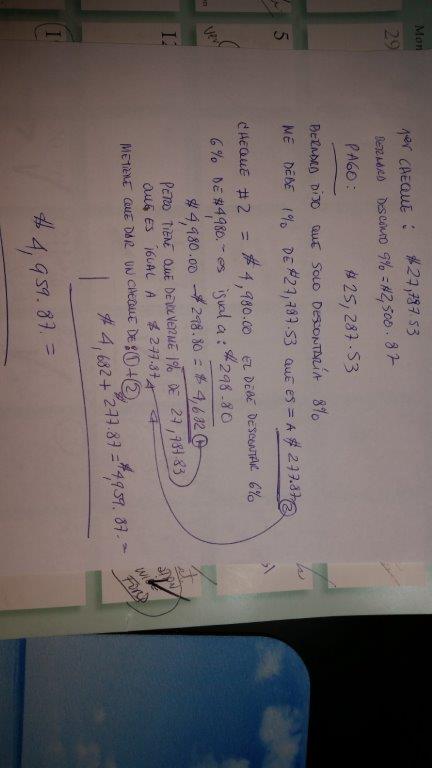 1er CHEQUE: $27,787.53
BERNARD DESCONTO 9% = $2,500.87
PAGO: $25,287.53
BERNARD DIJO QUE SOLO DESCONTARÍA 8%
ME DEBE 1% DE $27,787.53 QUE ES = A $277.87 2
CHEQUE #2 = $4,980.00 EL DEBE DESCONTAR 6%
6% DE $4,980.- es igual a: $298.80
$4,980.00 - $298.80 = $4,682 1
PERO TIENE QUE DEVOLVERME 1% DE 27,787.83
QUE ES IGUAL A $277.87
ME TIENE QUE DAR UN CHEQUE DE: 1 + 2
$4,682 + $277.87 = $4,959.87.=
$4,959.87.=
Mon
29
5
12
FORD